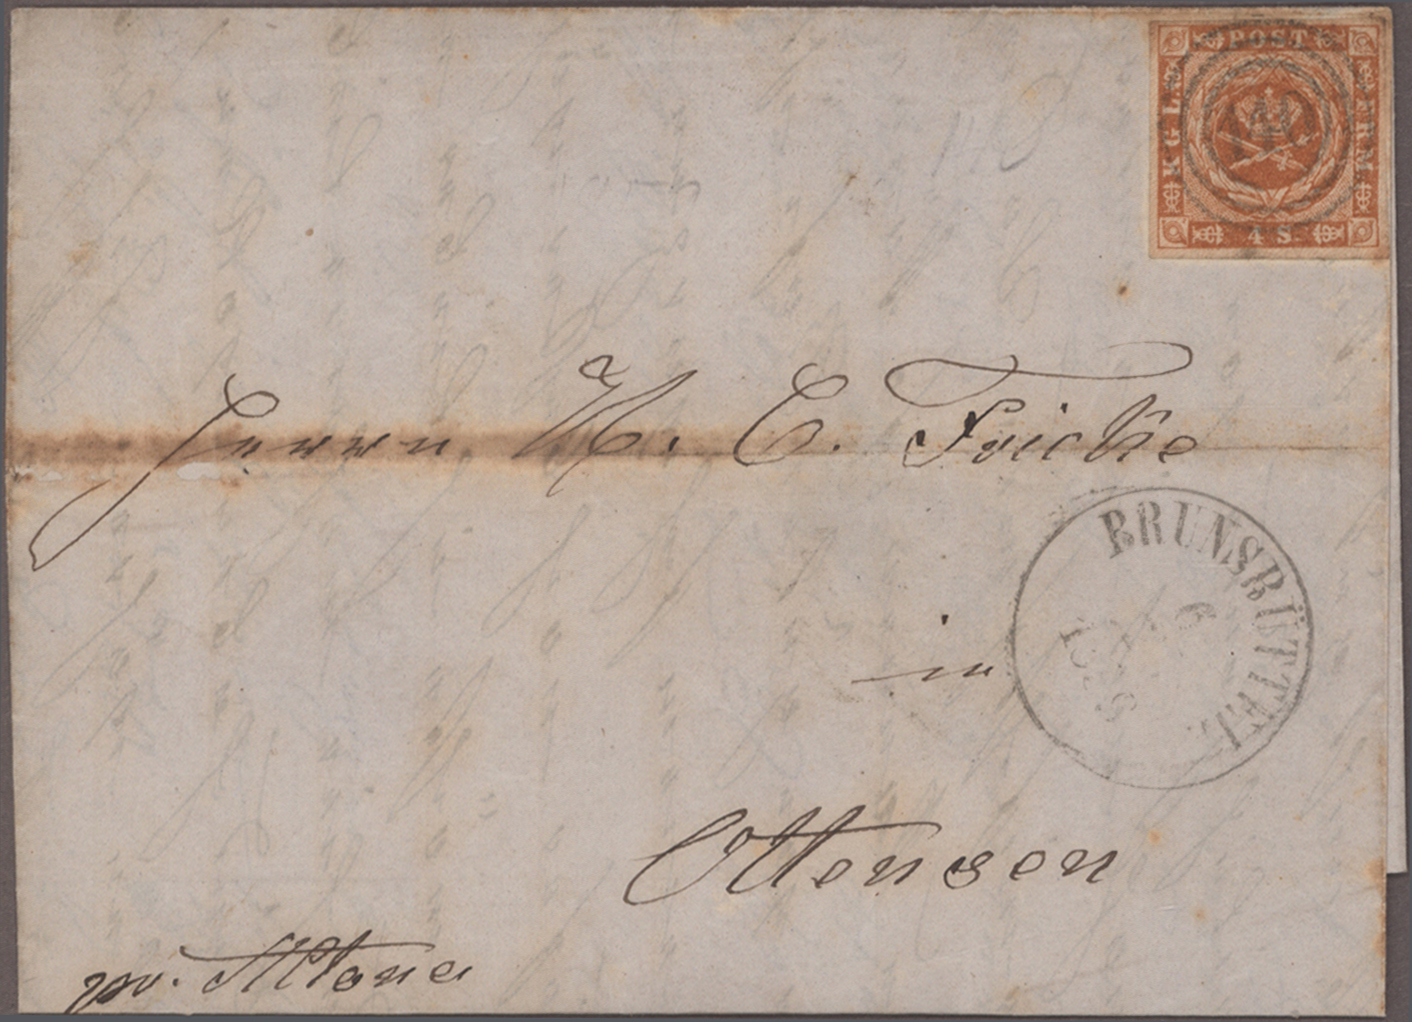 KGL POST FRM
4 S.
140
140
Herrn H. C. Fricke
BRUNSBÜTTEL
in
Ottensen
pr. Altona